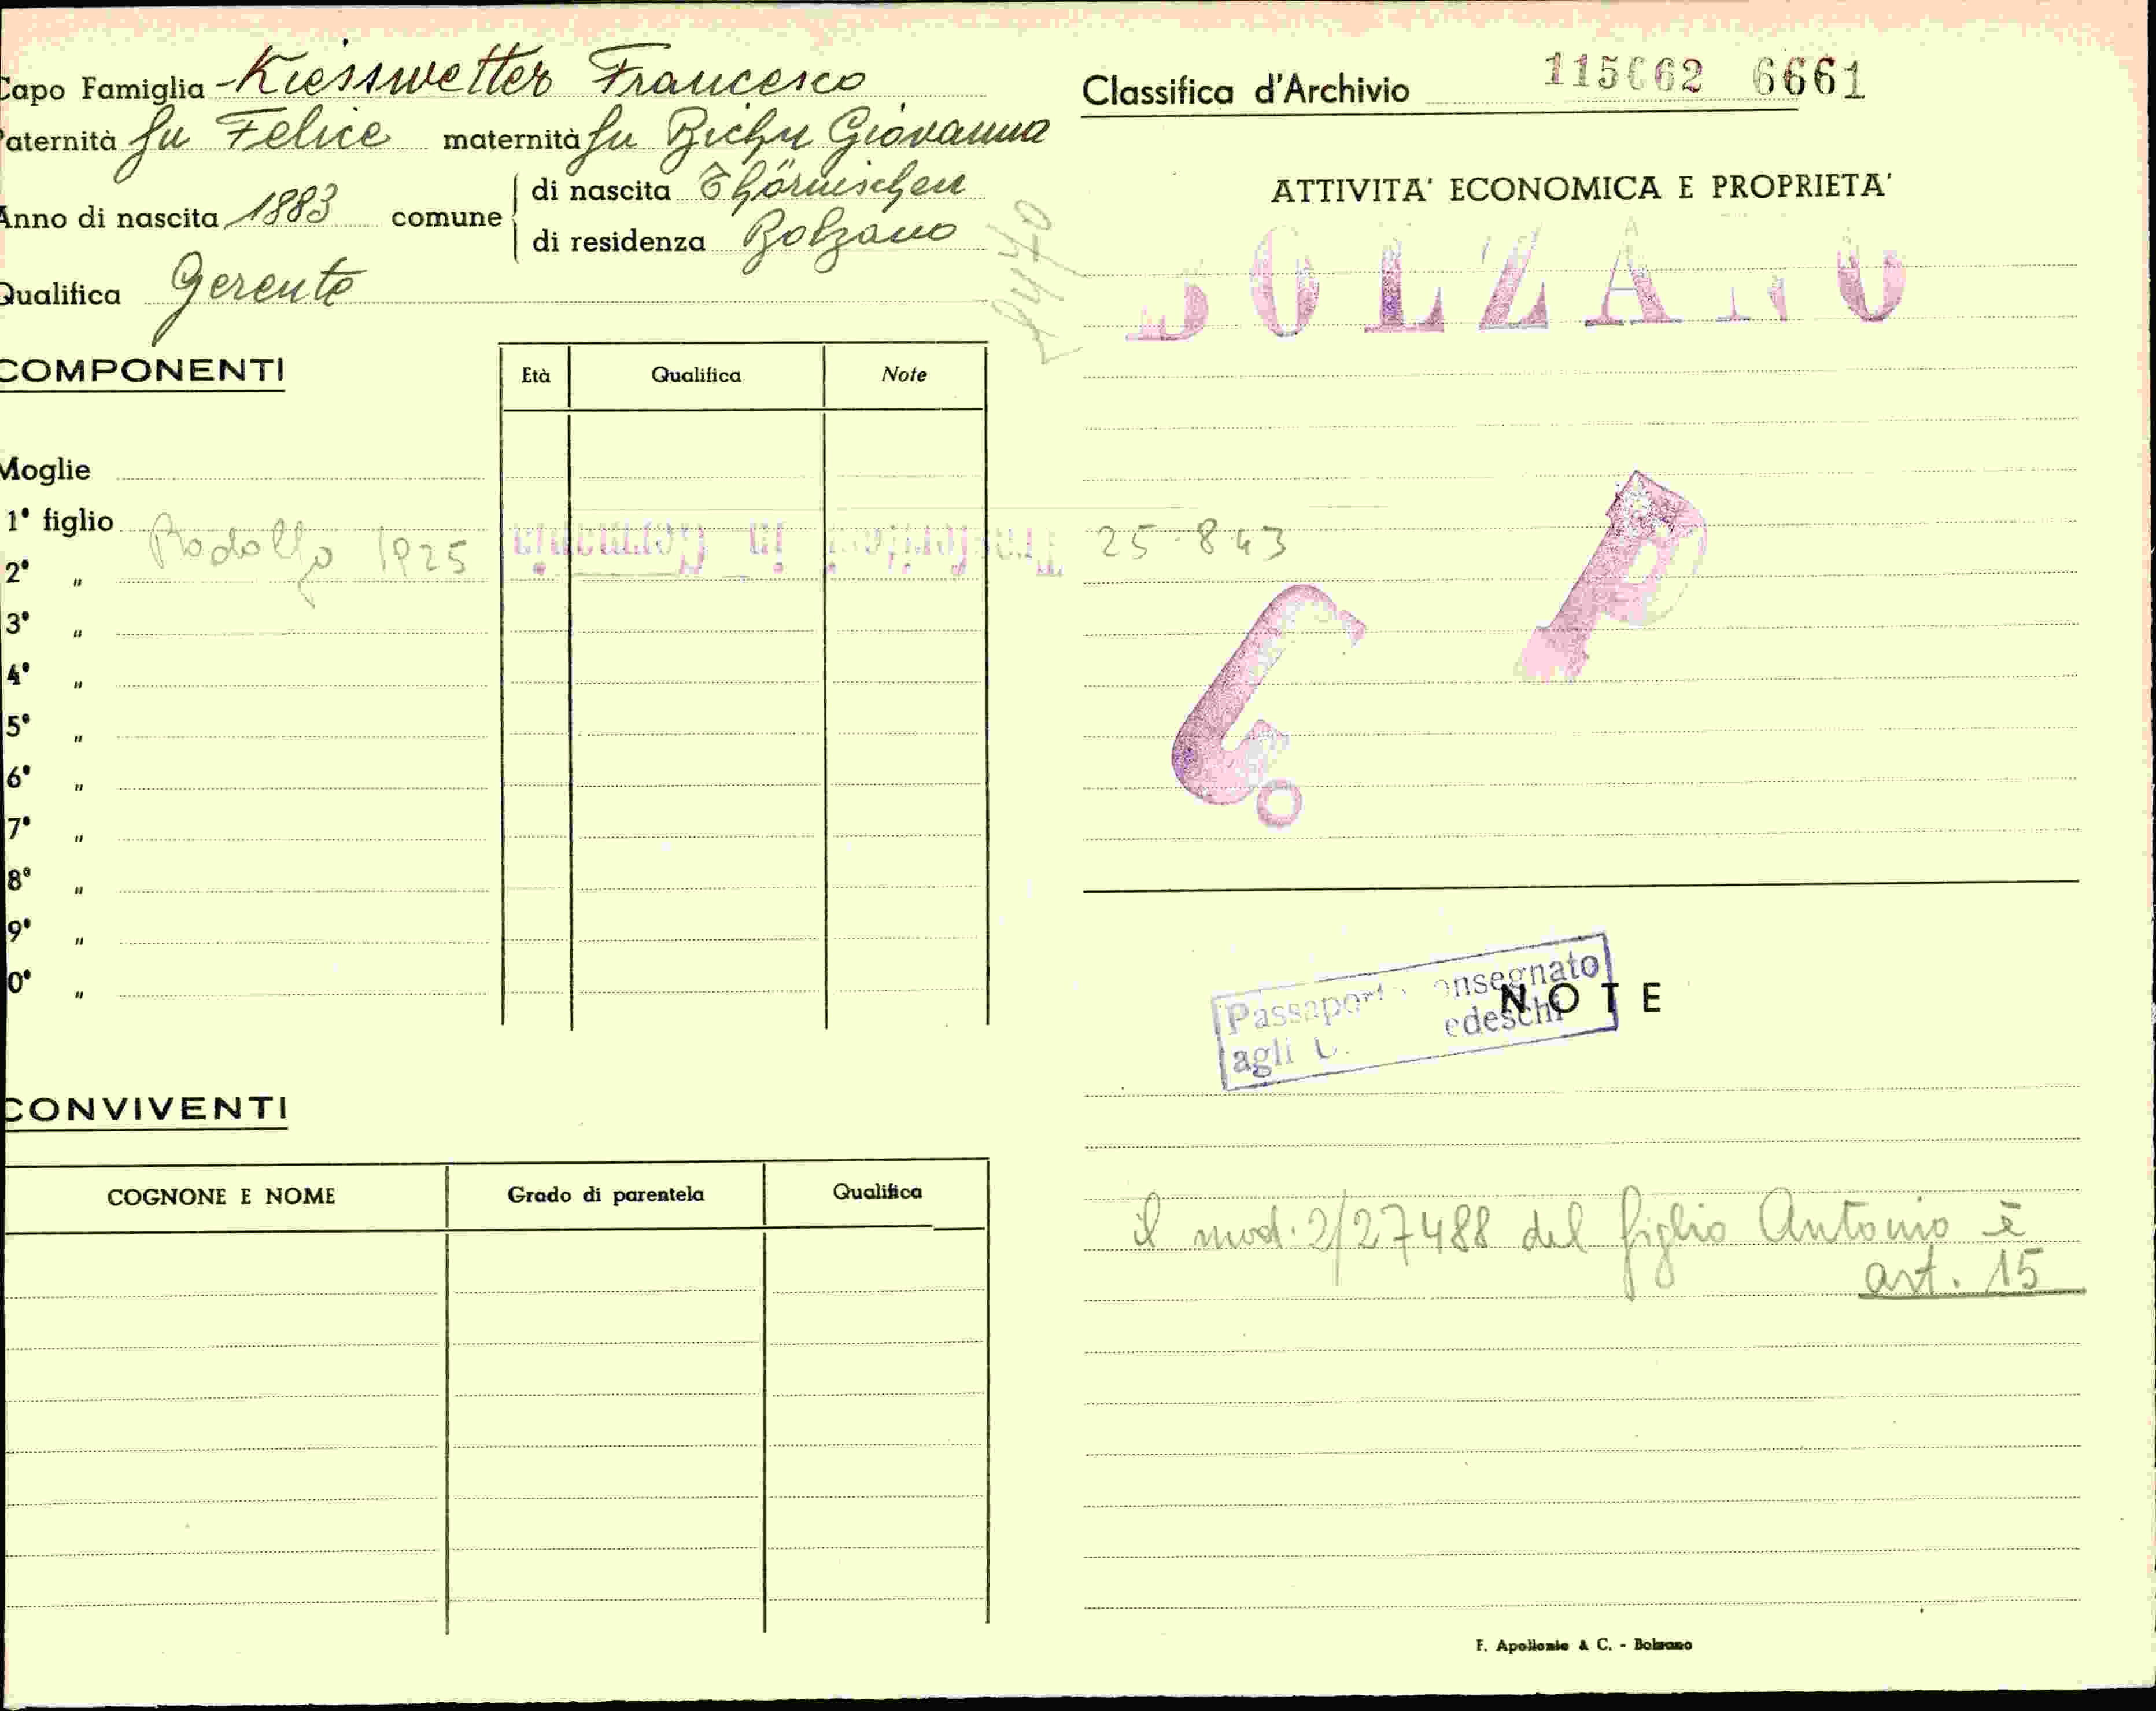 Capo Famiglia Kiesswetter Francesco
Paternità fu Felice maternità fu Giovanna
Anno di nascita 1883 comune di nascita
di residenza Bolzano
Qualifica Gerente
COMPONENTI
Età Qualifica Note
Moglie
1° figlio Rodolfo 1925
2° "
3° "
4° "
5° "
6° "
7° "
8° "
9° "
0° "
CONVIVENTI
COGNONE E NOME Grado di parentela Qualifica
Classifica d'Archivio 6661
ATTIVITA' ECONOMICA E PROPRIETA'
BOLZANO
25.8.43
P
C.
Passaporto consegnato
agli edeschi
NOTE
il mod. 2/27488 del figlio Antonio è
art. 15
F. Apollonio & C. - Bolzano